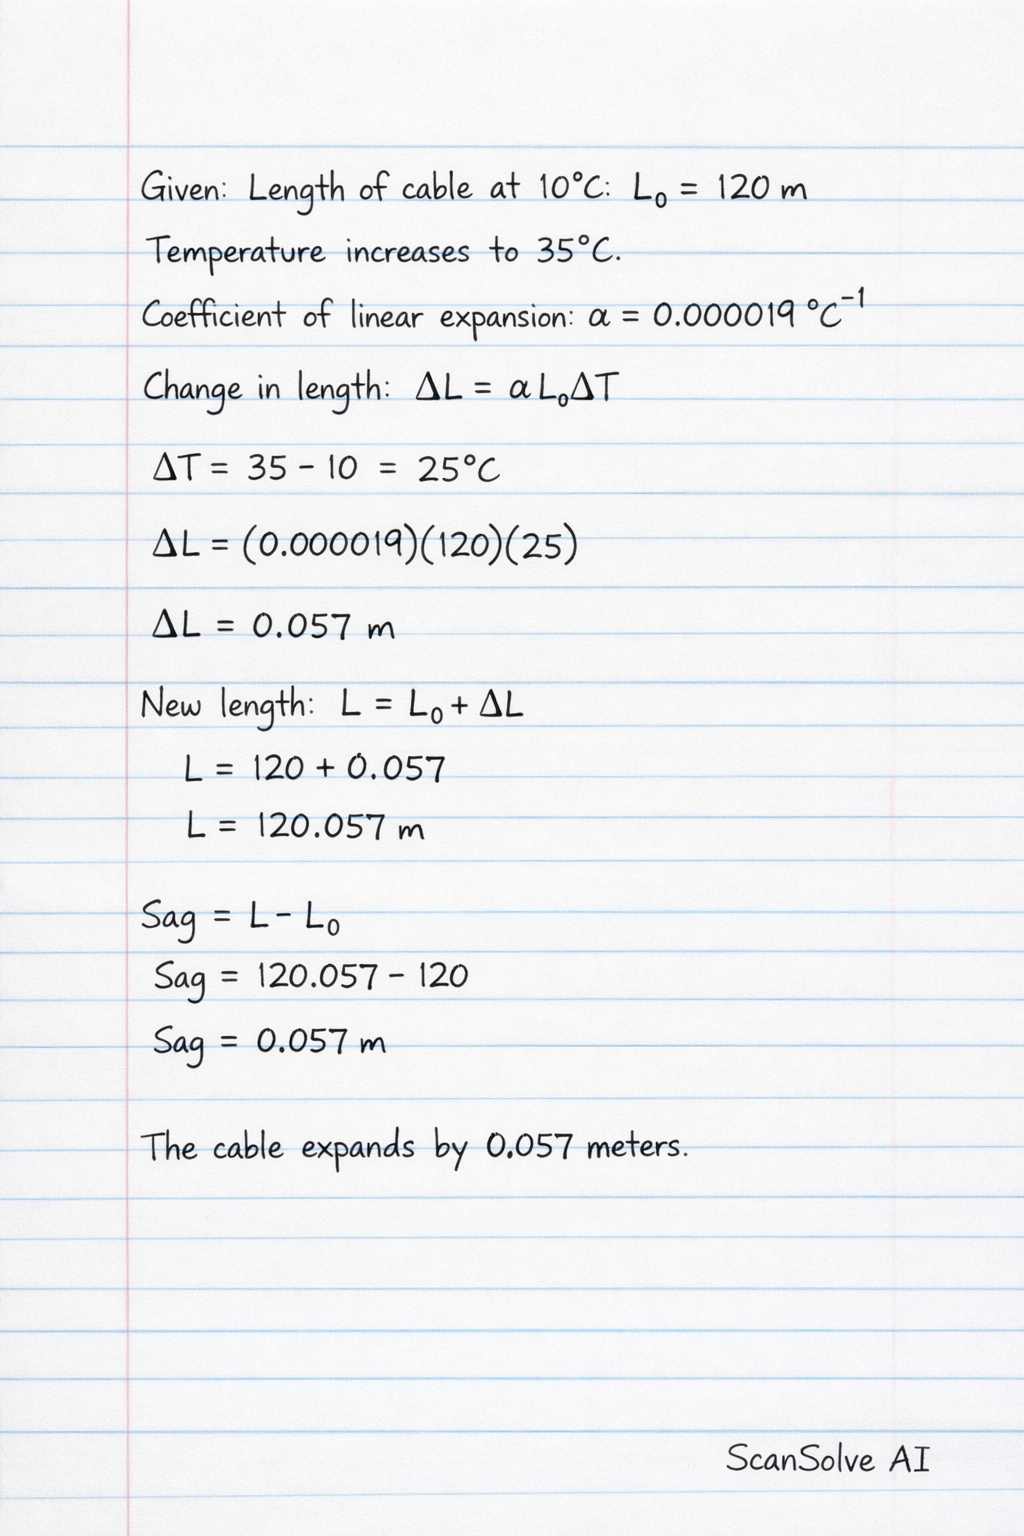 Given: Length of cable at 10°C: L₀ = 120 m
Temperature increases to 35°C.
Coefficient of linear expansion: α = 0.000019 °C⁻¹
Change in length: ΔL = α L₀ΔT
ΔT = 35 - 10 = 25°C
ΔL = (0.000019)(120)(25)
ΔL = 0.057 m
New length: L = L₀ + ΔL
L = 120 + 0.057
L = 120.057 m
Sag = L - L₀
Sag = 120.057 - 120
Sag = 0.057 m
The cable expands by 0.057 meters.
ScanSolve AI